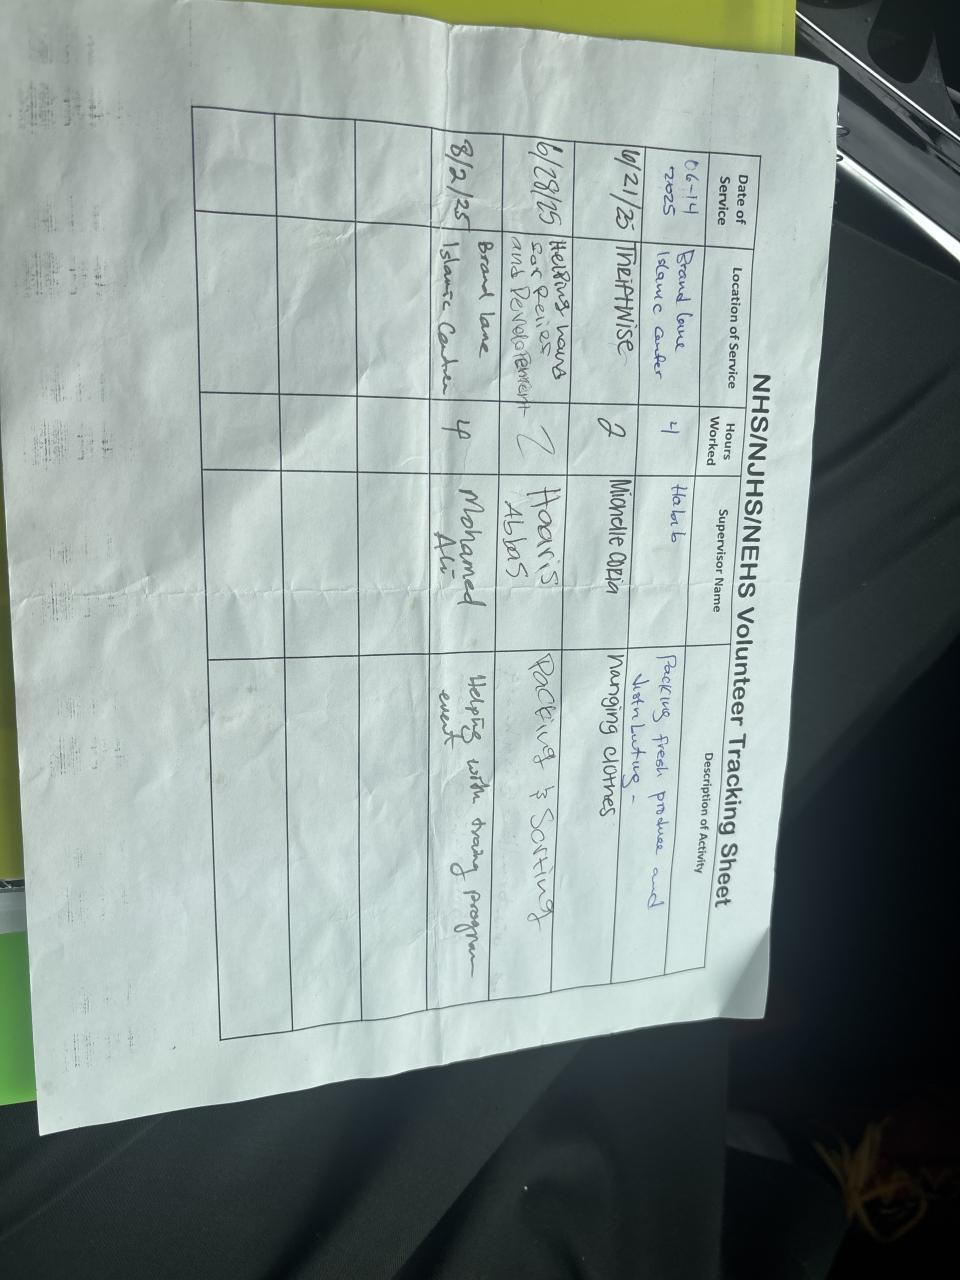 NHS/NJHS/NEHS Volunteer Tracking Sheet
Date of Service
Location of Service
Hours Worked
Supervisor Name
Description of Activity
06-14 2025
Brand lane Islamic center
4
Habib
Packing fresh produce and distributing -
6/21/25
ThriftWise
2
hanging clothes
6/28/25
Helping hand for Relief and Development
2
Haaris Abbas
Packing & Sorting
8/2/25
Brand lane Islamic Center
4
Mohamed Ali
Helping with program event